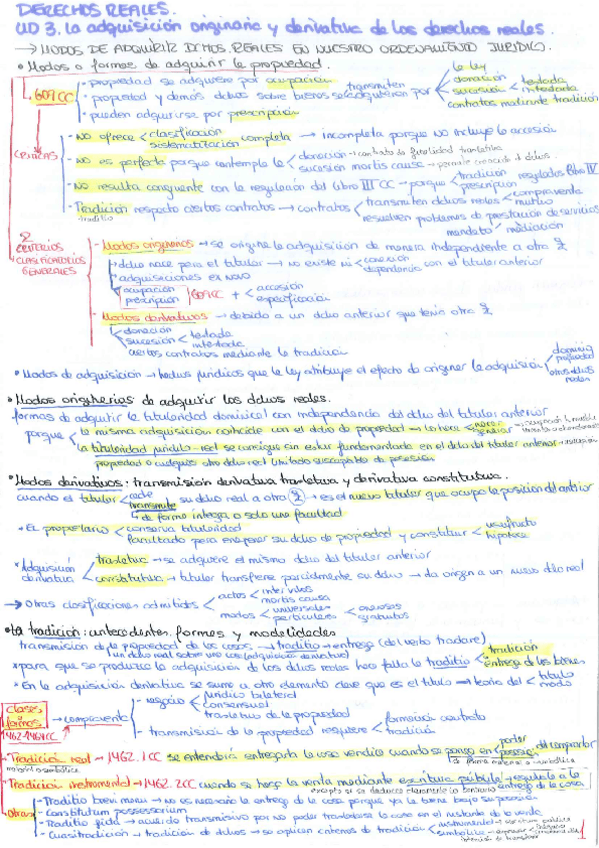 DERECHOS REALES.
UD 3. La adquisición originaria y derivativa de los derechos reales.
→ MODOS DE ADQUIRIR DCHOS. REALES EN NUESTRO ORDENAMIENTO JURÍDICO.
• Modos o formas de adquirir la propiedad.
609 CC
- propiedad se adquiere por ocupación
- propiedad y demás dchos sobre bienes se adquieren por transmiten
la ley
donación
sucesión
testada
intestada
contratos mediante tradición
- pueden adquirirse por prescripción
CRÍTICAS
- No ofrece clasificación sistematización completa → incompleta porque no incluye la accesión
- No es perfecta porque contempla la donación → contrato de finalidad traslativa
sucesión mortis causa →
- No resulta congruente con la regulación del Libro III CC → porque tradición prescripción regulados Libro IV
- Tradición respecto ciertos contratos → contratos transmiten dchos reales compraventa mutuo
traditio
resuelven problemas de prestación de servicios
mandato mediación
2 CRITERIOS CLASIFICADORES GENERALES
- Modos originarios → se origina la adquisición de manera independiente a otra
dcho nace para el titular → no existe ni conexión dependencia con el titular anterior
adquisiciones ex novo
ocupación
prescripción 609 CC + accesión especificación
- Modos derivativos → debido a un dcho anterior que tenía otra
donación
sucesión testada intestada
ciertos contratos mediante la tradición
• Modos de adquisición → hechos jurídicos que la ley atribuye el efecto de originar la adquisición dominio propiedad otros dchos reales
• Modos originarios de adquirir los dchos reales.
formas de adquirir la titularidad dominical con independencia del dcho del titular anterior
porque la misma adquisición coincide con el dcho de propiedad → lo hace nacer
la titularidad jurídico-real se consigue sin estar fundamentada en el dcho del titular anterior → usucapión
propiedad o cualquier otro dcho real limitado susceptible de posesión
• Modos derivativos: transmisión derivativa traslativa y derivativa constitutiva.
cuando el titular cede transmite su dcho real a otro → es el nuevo titular que ocupa la posición del antrior
↳ de forma íntegra o solo una facultad
• El propietario conserva titularidad
facultado para enajenar su dcho de propiedad y constituir usufructo hipoteca
• Adquisición derivativa
traslativa → se adquiere el mismo dcho del titular anterior
constitutiva → titular transfiere parcialmente su dcho → da origen a un nuevo dcho real
→ Otras clasificaciones admitidas
actos inter vivos mortis causa
modos universales particulares onerosos gratuitos
• La tradición: antecedentes, formas y modalidades
transmisión de la propiedad de las cosas → traditio → entrega (del verbo tradare)
un dcho real sobre una cosa (adquisición derivativa)
• para que se produzca la adquisición de los dchos reales hace falta la traditio tradición entrega de los bienes
• En la adquisición derivativa se suma a otro elemento clave que es el título → teoría del título modo
Clases o formas
1462-1464 CC
→ compraventa
- negocio jurídico bilateral consensual traslativo de la propiedad
- transmisión de la propiedad requiere formación contrato tradición
- Tradición real → 1462.1 CC se entenderá entregada la cosa vendida cuando se ponga en poder posesión del comprador
- Tradición instrumental → 1462.2 CC cuando se hace la venta mediante escritura pública → equivale a la entrega de la cosa
excepto si se deduce claramente lo contrario
Otras
- Traditio brevi manu → no es necesaria la entrega de la cosa porque ya la tiene bajo su posesión
- Constitutum possessorium
- Traditio ficta → acuerdo transmisivo por no poder trasladarse la cosa en el instante de la venta
- Cuasitradición → tradición de dchos → se aplican criterios de tradición instrumental simbólica
1